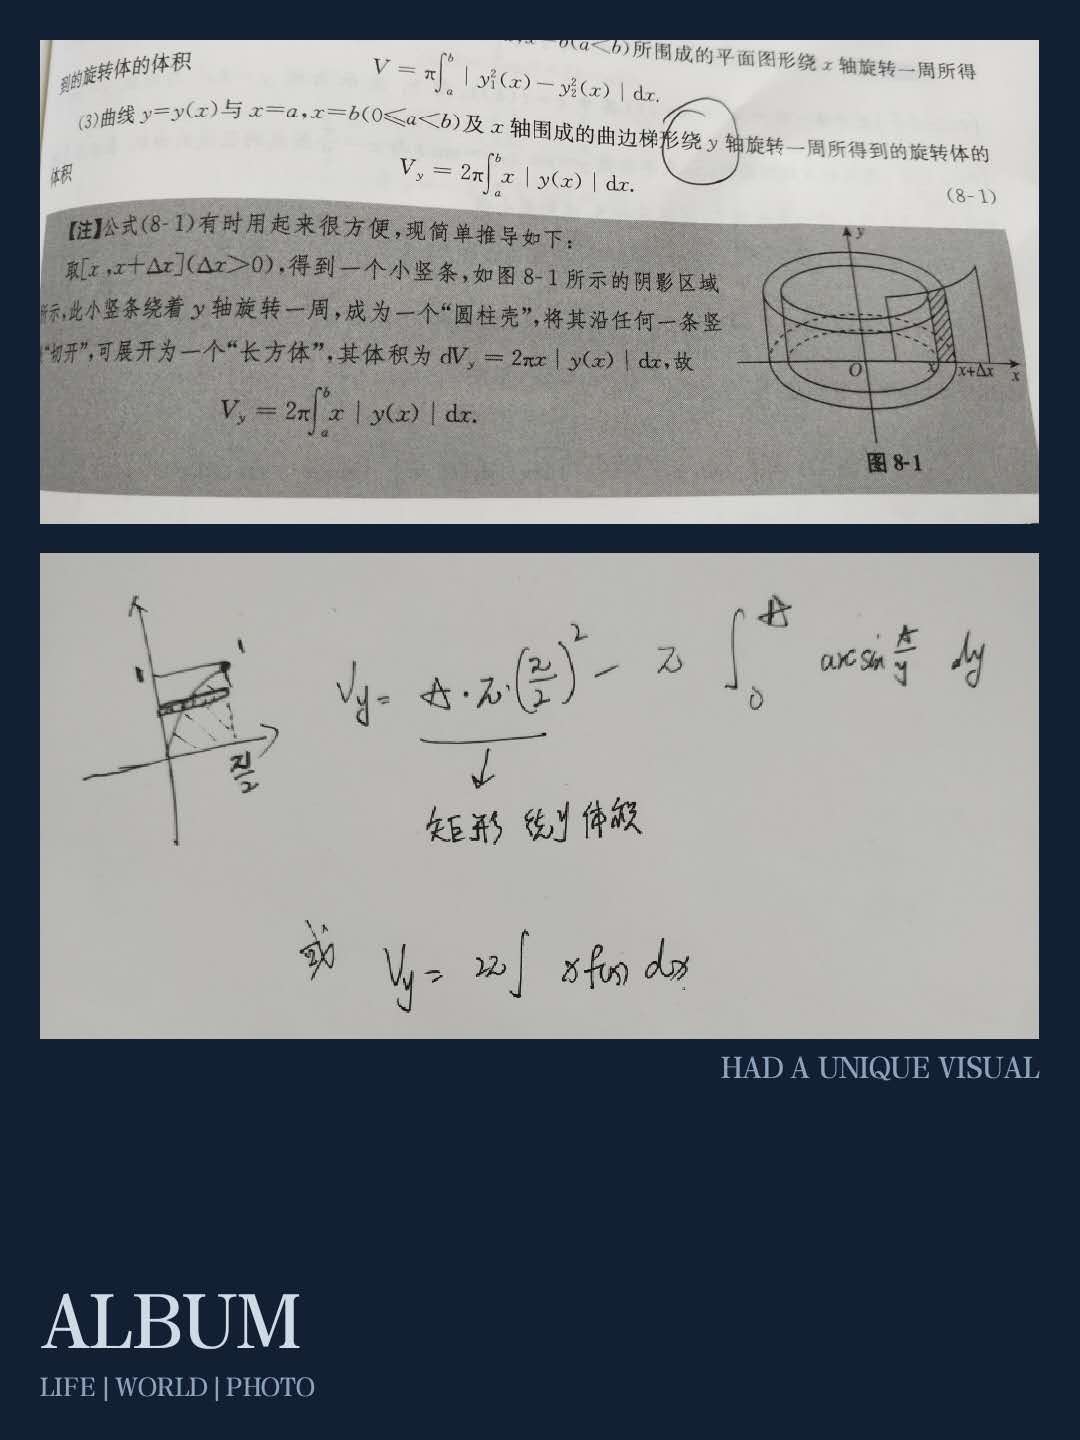 b(a<b)所围成的平面图形绕 x 轴旋转一周所得
到的旋转体的体积
V = π∫_a^b | y₁²(x) − y₂²(x) | dx.
(3)曲线 y=y(x)与 x=a,x=b(0≤a<b)及 x 轴围成的曲边梯形绕 y 轴旋转一周所得到的旋转体的
体积
V_y = 2π∫_a^b x | y(x) | dx.
(8-1)
【注】公式(8-1)有时用起来很方便,现简单推导如下:
取[x,x+Δx](Δx>0),得到一个小竖条,如图 8-1 所示的阴影区域
所示,此小竖条绕着 y 轴旋转一周,成为一个“圆柱壳”,将其沿任何一条竖
“切开”,可展开为一个“长方体”,其体积为 dV_y = 2πx | y(x) | dx,故
V_y = 2π∫_a^b x | y(x) | dx.
y
O
x
x+Δx
x
图 8-1
1
1
π/2
V_y = A · π · (π/2)² − π ∫_0^A arcsin A/y dy
矩形 绕y 体积
或 V_y = 2π∫ x f(x) dx
HAD A UNIQUE VISUAL
ALBUM
LIFE | WORLD | PHOTO